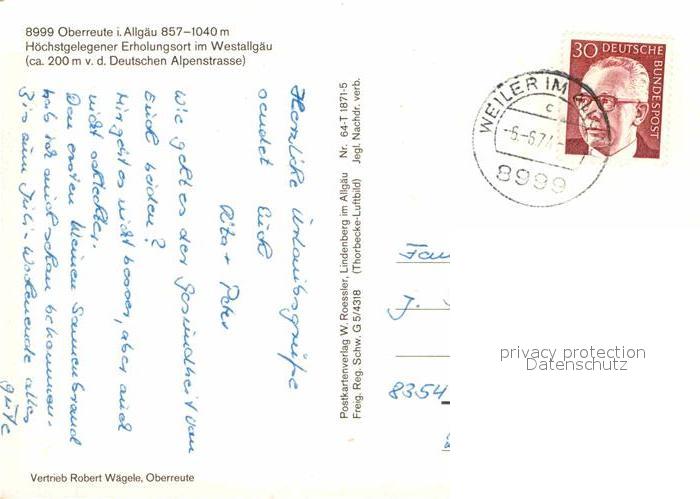 8999 Oberreute i. Allgäu 857–1040 m
Höchstgelegener Erholungsort im Westallgäu
(ca. 200 m v. d. Deutschen Alpenstrasse)
Herzliche Urlaubsgrüße
sendet Euch
Rita + Peter
Wie geht es der Gesundheit von
Euch beiden?
Mir geht es nicht besser, aber auch
nicht schlechter.
Den ersten kleinen Sonnenbrand
hab ich auch schon bekommen.
Bis zum Juli-Wochenende alles
Gute
Vertrieb Robert Wägele, Oberreute
Postkartenverlag W. Roessler, Lindenberg im Allgäu Nr. 64-T 1871-5
Freig. Reg. Schw. G 5/4318 (Thorbecke-Luftbild) Jegl. Nachdr. verb.
30 DEUTSCHE
BUNDESPOST
WEILER IM
c
-6.-6.74-
8999
Fam
J.
8354
privacy protection
Datenschutz